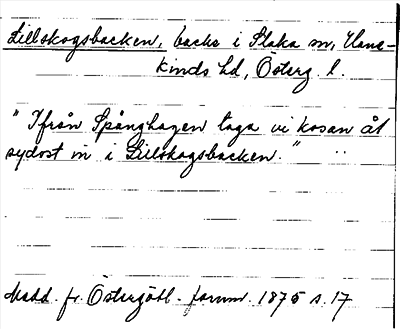 Lillskogsbacken, backe i Slaka sn, Hane-
kinds hd, Österg. l.
"Ifrån Spånghagen taga vi kosan åt
sydost in i Lillskogsbacken."
Medd. fr. Östergötl. fornm. 1875 s. 17